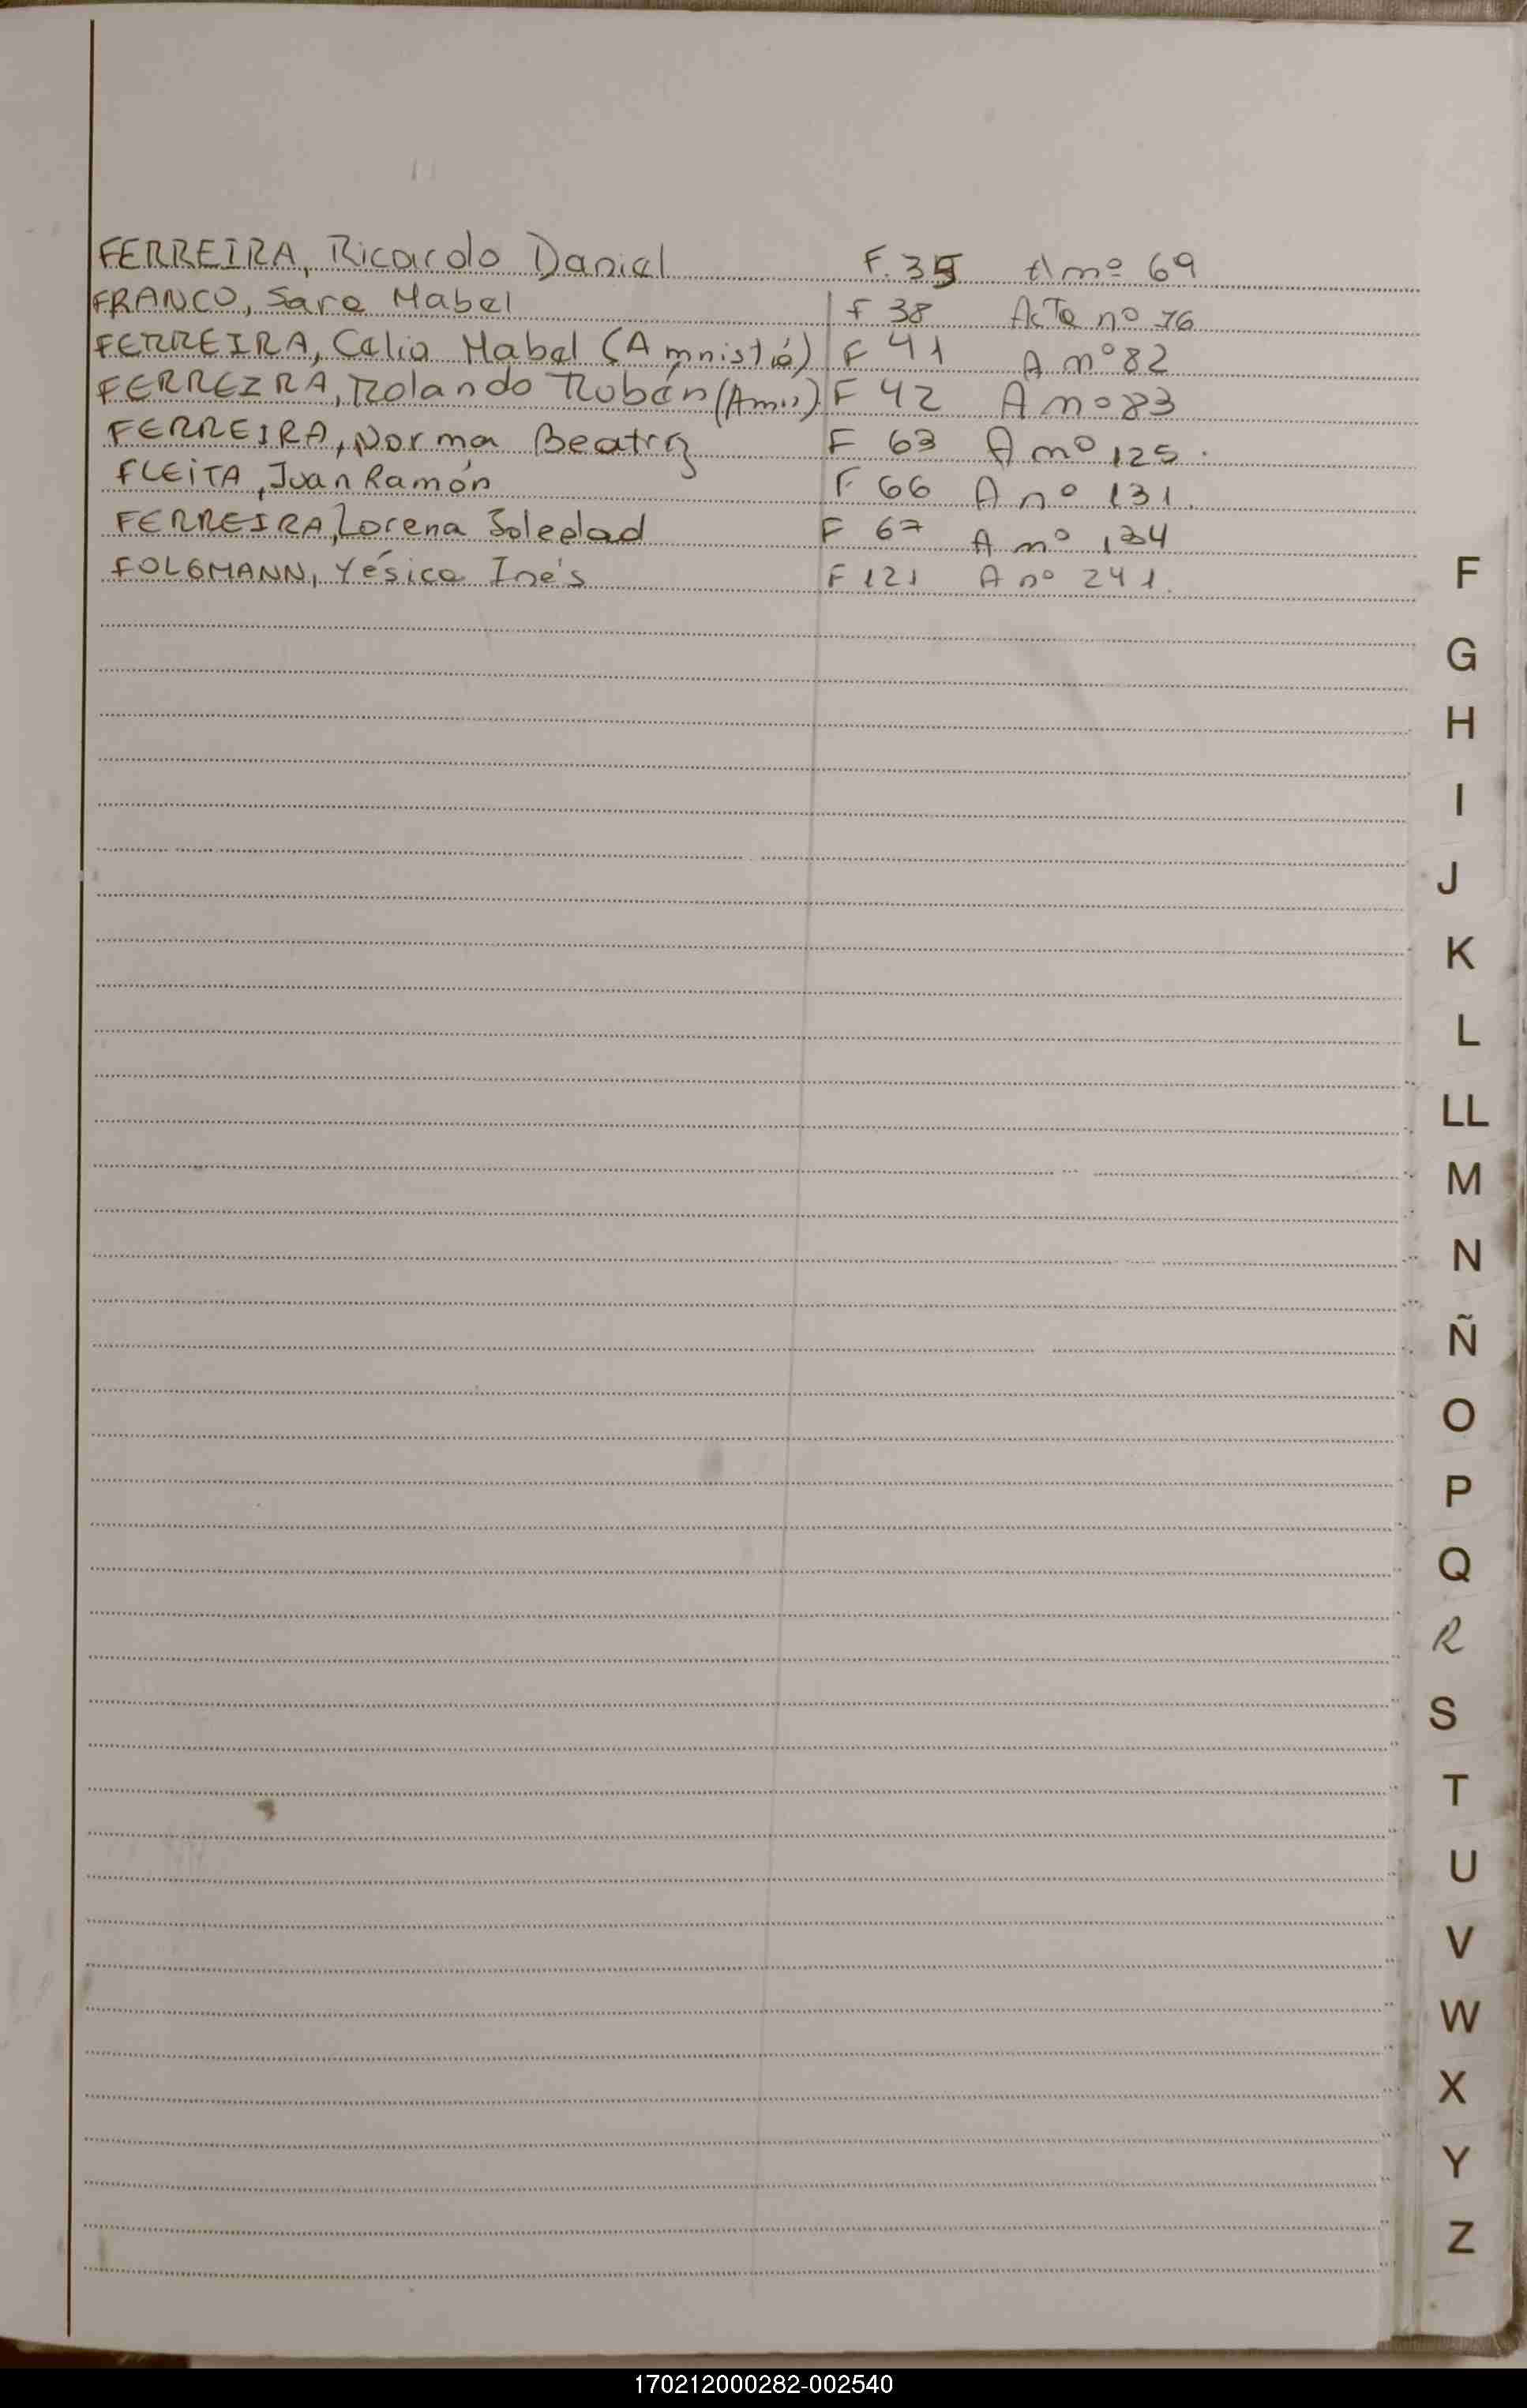 FERREIRA, Ricardo Daniel F. 35 A nº 69
FRANCO, Sara Mabel F 38 Acta nº 76
FERREIRA, Celia Mabel (Amnistía) F 41 A nº 82
FERREIRA, Rolando Rubén (Amn) F 42 A nº 83
FERREIRA, Norma Beatriz F 63 A nº 125.
FLEITA, Juan Ramón F 66 A nº 131.
FERREIRA, Lorena Soledad F 67 A nº 134
FOLGMANN, Yésica Inés F 121 A nº 241.
F
G
H
I
J
K
L
LL
M
N
Ñ
O
P
Q
R
S
T
U
V
W
X
Y
Z
170212000282-002540